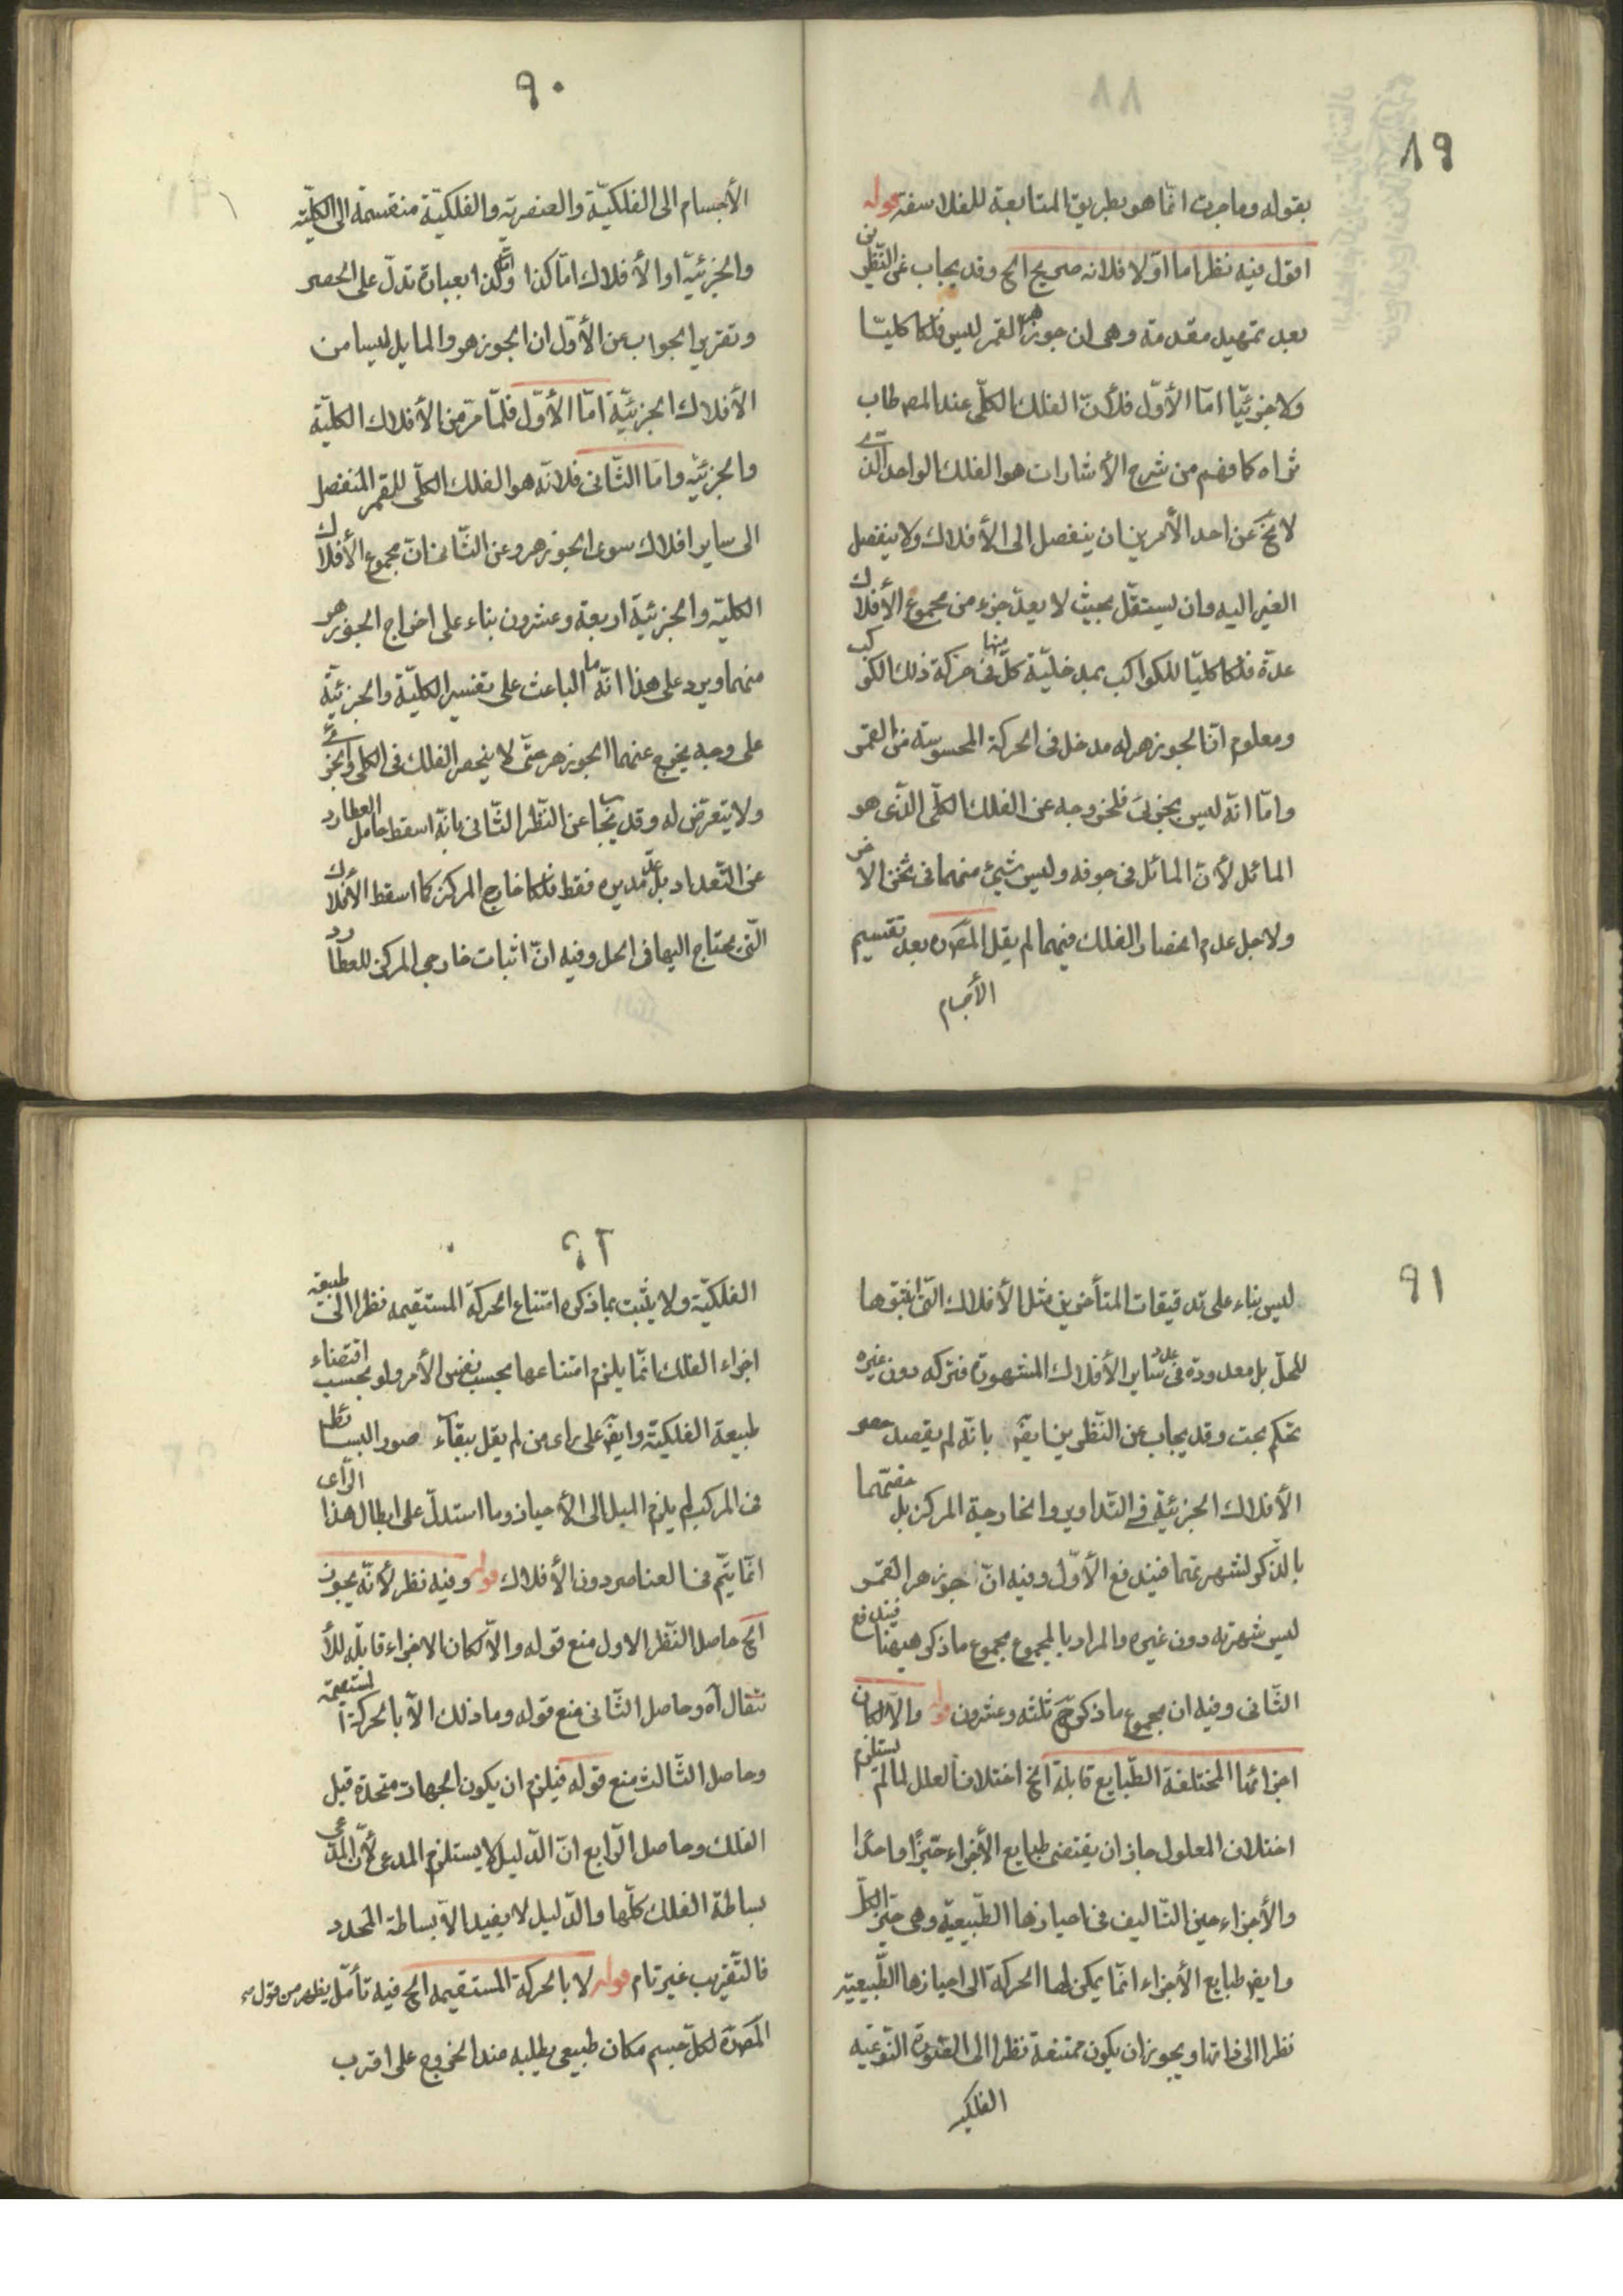 ٨٩
بقوله وما جرت انما هو بطريق المتابعة للفلاسفة قوله
اقول فيه نظر اما اوّلا فلانه صريح الخ وقد يجاب عن النّظرين
بعد تمهيد مقدمة وهى ان جوزهر القمر ليس فلكا كليّا
ولا جزئيّا امّا الأوّل فلأنّ الفلك الكلّى عند المصـ طاب
ثراه كما فهم من شرح الأشارات هو الفلك الواحد الّذى
لا يخ عن احد الأمرين ان ينفصل الى الأفلاك ولا ينفصل
الغير اليه وان يستقلّ بحيث لا يعدّ جزء من مجموع الأفلاك
عدّة فلكا كليّا للكواكب بمدخليّة كلّ منها فى حركة ذلك الكوكب
ومعلوم انّ الجوزهر له مدخل فى الحركة المحسوسة من القمر
وامّا انّه ليس بجزئى فلخروجه عن الفلك الكلّى الّذى هو
المائل لأنّ المائل فى جوفه وليس شيئ منهما فى ثخن الاخر
ولاجل عدم انحصار الفلك فيهما لم يقل المصـ ره بعد تقسيم
الأجسام
٩٠
الأجسام الى الفلكيّة والعنصريّه والفلكيّة منقسمة الى الكليّة
والجزئيّة او الأفلاك امّا كذا وامّا كذا بعبارة تدلّ على الحصر
وتقرير الجواب عن الأوّل ان الجوزهر والمايل ليسا من
الأفلاك الجزئيّة امّا الأوّل فلمّا مرّ من الأفلاك الكليّة
والجزئيّه وامّا الثّانى فلانّه هو الفلك الكلّى للقمر المنفصل
الى ساير افلاك سوى الجوزهر وعن الثّانى انّ مجموع الأفلاك
الكليّه والجزئيّة اربعة وعشرون بناء على اخراج الجوزهر
منهما ويرد على هذا انّه ما الباعث على تفسير الكليّة والجزئيّة
على وجه يخرج عنهما الجوزهر حتّى لا ينحصر الفلك فى الكلى والجزئى
ولا يتعرّض له وقد يجاب عن النّظر الثّانى بانّه اسقط حامل العطارد
عن التّعداد بل عدّ مديره فقط فلكا خارج المركز كما اسقط الأفلاك
الّتى يحتاج اليها فى الحل وفيه انّ اثبات خارجى المركز للعطارد
٩١
ليس بناء على تدقيقات المتأخرين مثل الأفلاك الّتى اثبتوها
للحلّ بل معدودة فى عدد ساير الأفلاك المشهورة فتركه دون غيره
تحكم بحت وقد يجاب عن النّظرين ايضـ بانّه لم يقصد حصر
الأفلاك الجزئيّة فى التّداوير والخارجة المركز بل خصّهما
بالذكر لشهرتهما فيندفع الأوّل وفيه انّ جوزهر القمر
ليس شهرته دون غيره والمراد بالمجموع مجموع ما ذكر هيهنا فيندفع
الثّانى وفيه ان مجموع ما ذكر ثلثه وعشرون قوله والّا لكان
اجزائها المختلفة الطّبايع قابلة الخ اختلاف العلل لما لم يستلزم
اختلاف المعلول جاز ان يقتضى طبايع الأجزاء حيّزا واحدا
والأجزاء حين التّاليف فى احيازها الطّبيعيّة وهى حيّز الكلّ
وايضـ طبايع الأجزاء انّما يمكن لها الحركة الى احيازها الطّبيعيّة
نظرا الى ذاتها ويجوز ان يكون ممتنعة نظرا الى الصّورة النّوعيّه
الفلكيه
٩٢
الفلكيّة ولا يثبت بما ذكره امتناع الحركة المستقيمه نظرا الى طبيعة
اجزاء الفلك انّما يلزم امتناعها بحسب نفس الأمر ولو بحسب اقتضاء
طبيعة الفلكيّة وايضـ على راى من لم يقل ببقاء صور البسائط
فى المركب لم يلزم الميل الى الأحياز وما استدلّ على ابطال هذا الرّأى
انّما يتّم فى العناصر دون الأفلاك قوله وفيه نظر لأنّه يجوز
الخ حاصل النّظر الاول منع قوله والّا لكان الاجزاء قابلة للأ
نتقال آه وحاصل الثّانى منع قوله وما ذلك الّا بالحركة المستقيمة
وحاصل الثّالث منع قوله فيلزم ان يكون الجهات متحدّدة قبل
الفلك وحاصل الرّابع انّ الدّليل لا يستلزم المدعى لأنّ المدّعى
بساطة الفلك كلّها والدّليل لا يفيد الّا بساطة المحدد
فالتّقريب غير تام قوله لا بالحركة المستقيمه الخ فيه تأمّل يظهر من قوله
المصـ ره لكلّ جسم مكان طبيعى يطلبه عند الخروج على اقرب